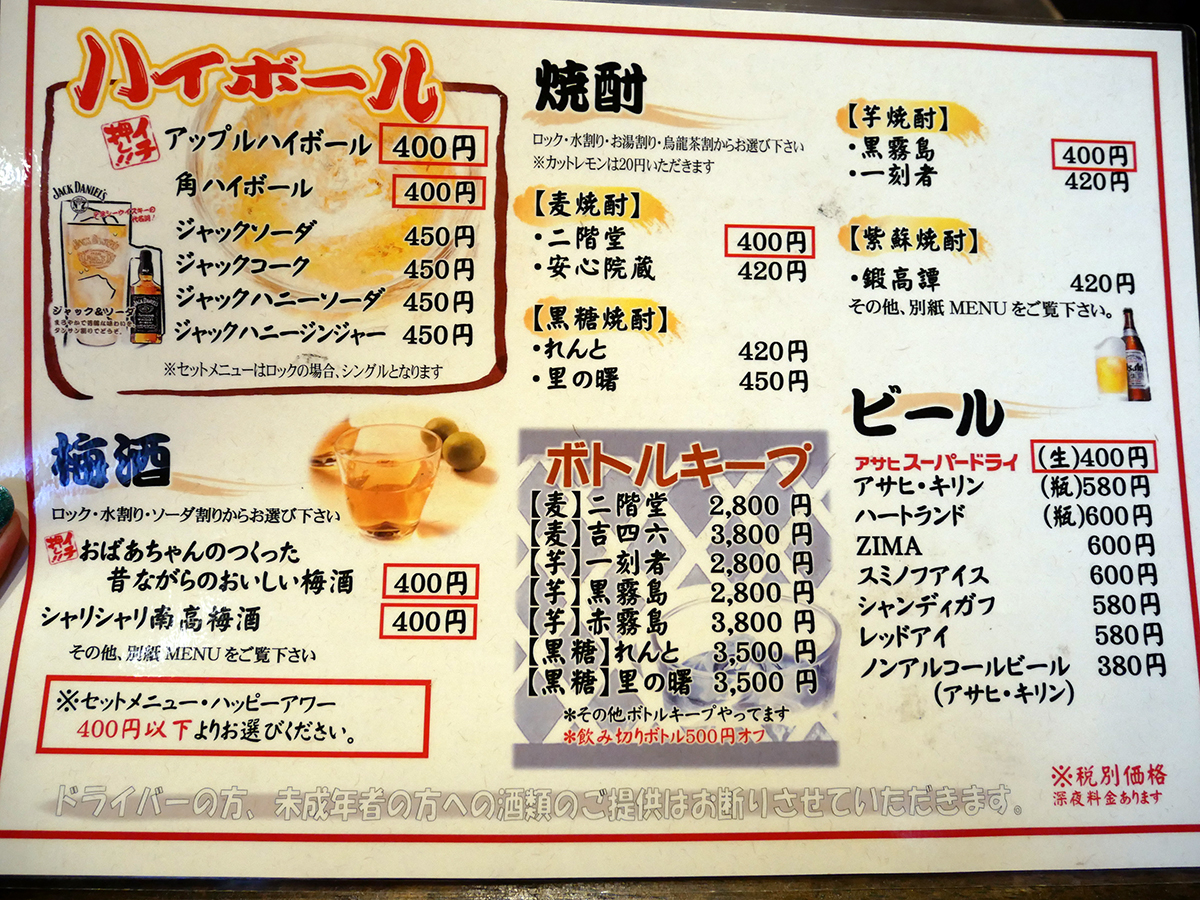 ハイボール
イチ押し!!
アップルハイボール 400円
角ハイボール 400円
ジャックソーダ 450円
ジャックコーク 450円
ジャックハニーソーダ 450円
ジャックハニージンジャー 450円
JACK DANIEL'S
ジャック&ソーダ
※セットメニューはロックの場合、シングルとなります
梅酒
ロック・水割り・ソーダ割りからお選び下さい
イチ押し!!
おばあちゃんのつくった
昔ながらのおいしい梅酒 400円
シャリシャリ南高梅酒 400円
その他、別紙MENUをご覧下さい
※セットメニュー・ハッピーアワー
400円以下よりお選びください。
焼酎
ロック・水割り・お湯割り・烏龍茶割からお選び下さい
※カットレモンは20円いただきます
【麦焼酎】
・二階堂 400円
・安心院蔵 420円
【黒糖焼酎】
・れんと 420円
・里の曙 450円
【芋焼酎】
・黒霧島 400円
・一刻者 420円
【紫蘇焼酎】
・鍛高譚 420円
その他、別紙MENUをご覧下さい。
ボトルキープ
【麦】二階堂 2,800円
【麦】吉四六 3,800円
【芋】一刻者 2,800円
【芋】黒霧島 2,800円
【芋】赤霧島 3,800円
【黒糖】れんと 3,500円
【黒糖】里の曙 3,500円
*その他ボトルキープやってます
*飲み切りボトル500円オフ
Asahi
ビール
アサヒスーパードライ (生)400円
アサヒ・キリン (瓶)580円
ハートランド (瓶)600円
ZIMA 600円
スミノフアイス 600円
シャンディガフ 580円
レッドアイ 580円
ノンアルコールビール 380円
(アサヒ・キリン)
※税別価格
深夜料金あります
ドライバーの方、未成年者の方への酒類のご提供はお断りさせていただきます。